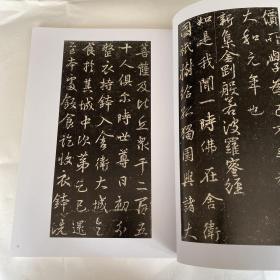 大和元年也
新集金剛般若波羅蜜經
如是我聞一時佛在舍衛
國祇樹給孤獨園與諸大
菩薩及比丘衆千二百五
十人俱尒時世尊日初分
整衣持鉢入舍衛大城乞
食於其城中次第乞已還
至本處飯食訖收衣鉢洗